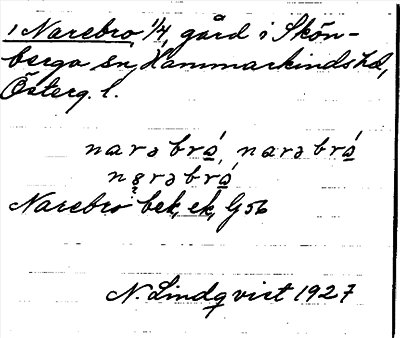 1 Narebro 1/4, gård i Skön-
berga sn, Hammarkinds hd,
Österg. l.
narəbró, narəbró
nɐrəbró
Narebro bek, ek, G 56
N. Lindqvist 1927